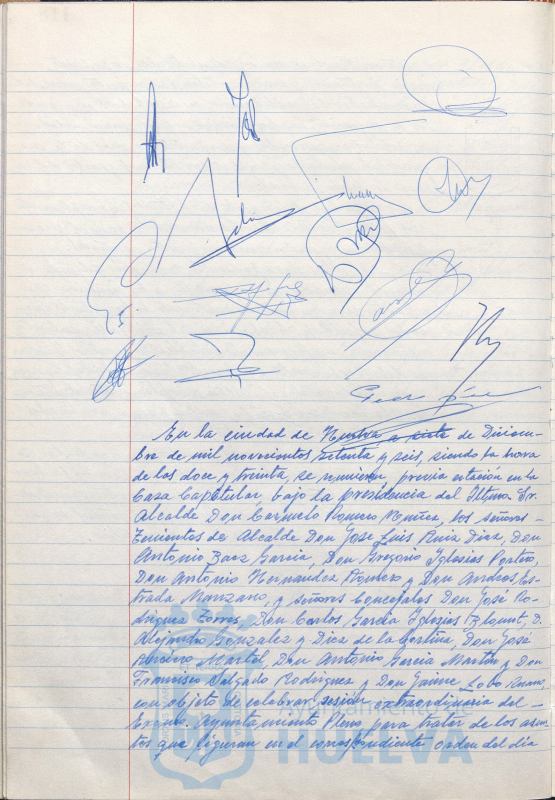 En la ciudad de Huelva, a siete de Diciem-
bre de mil novecientos setenta y seis, siendo la hora
de las doce y treinta, se reunieron, previa citación en la
Casa Capitular, bajo la presidencia del Iltmo. Sr.
Alcalde Don Carmelo Romero Núñez, los señores
Tenientes de Alcalde Don José Luis Ruiz Díaz, Don
Antonio Baez García, Don Gregorio Iglesias
Don Antonio Hernandez Romero y Don Andrés Es-
trada Manzano, y señores Concejales Don José Ro-
driguez Torres, Don Carlos García Iglesias Blount, D.
Alejandro González y Diez de la Cortina, Don José
Martel, Don Antonio García Martín y Don
Francisco Salgado Rodriguez y Don Jaime Lobo
con objeto de celebrar sesión extraordinaria del
Excmo. Ayuntamiento Pleno para tratar de los asun-
tos que figuran en el correspondiente orden del día
HUELVA